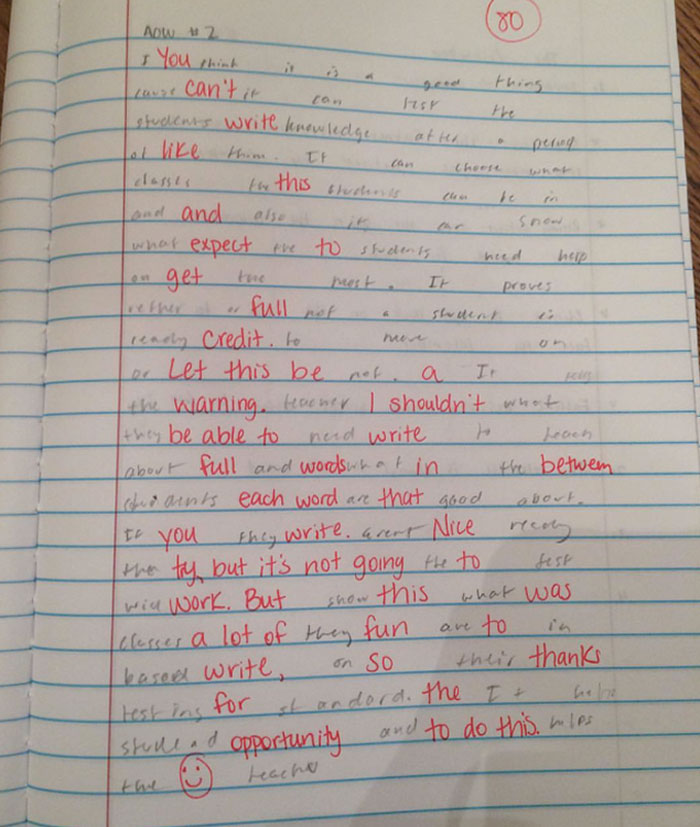 80
AOW #2
I You think it is a good thing
cause can't it can test the
students write knowledge after a period
of like them. It can choose what
classes the this students can be in
and and also it can show
what expect the to students need help
on get the most. It proves
rether or full not a student is
ready credit. to move on
or Let this be not. a It tells
the warning. teacher I shouldn't what
they be able to need write to teach
about full and words what in the betwem
students each word are that good about.
If you they write. arent Nice ready
the try, but it's not going the to test
will work. But show this what was
classes a lot of they fun are to in
based write, on so their thanks
testing for standard. the It help
student opportunity and to do this. helps
the teacher